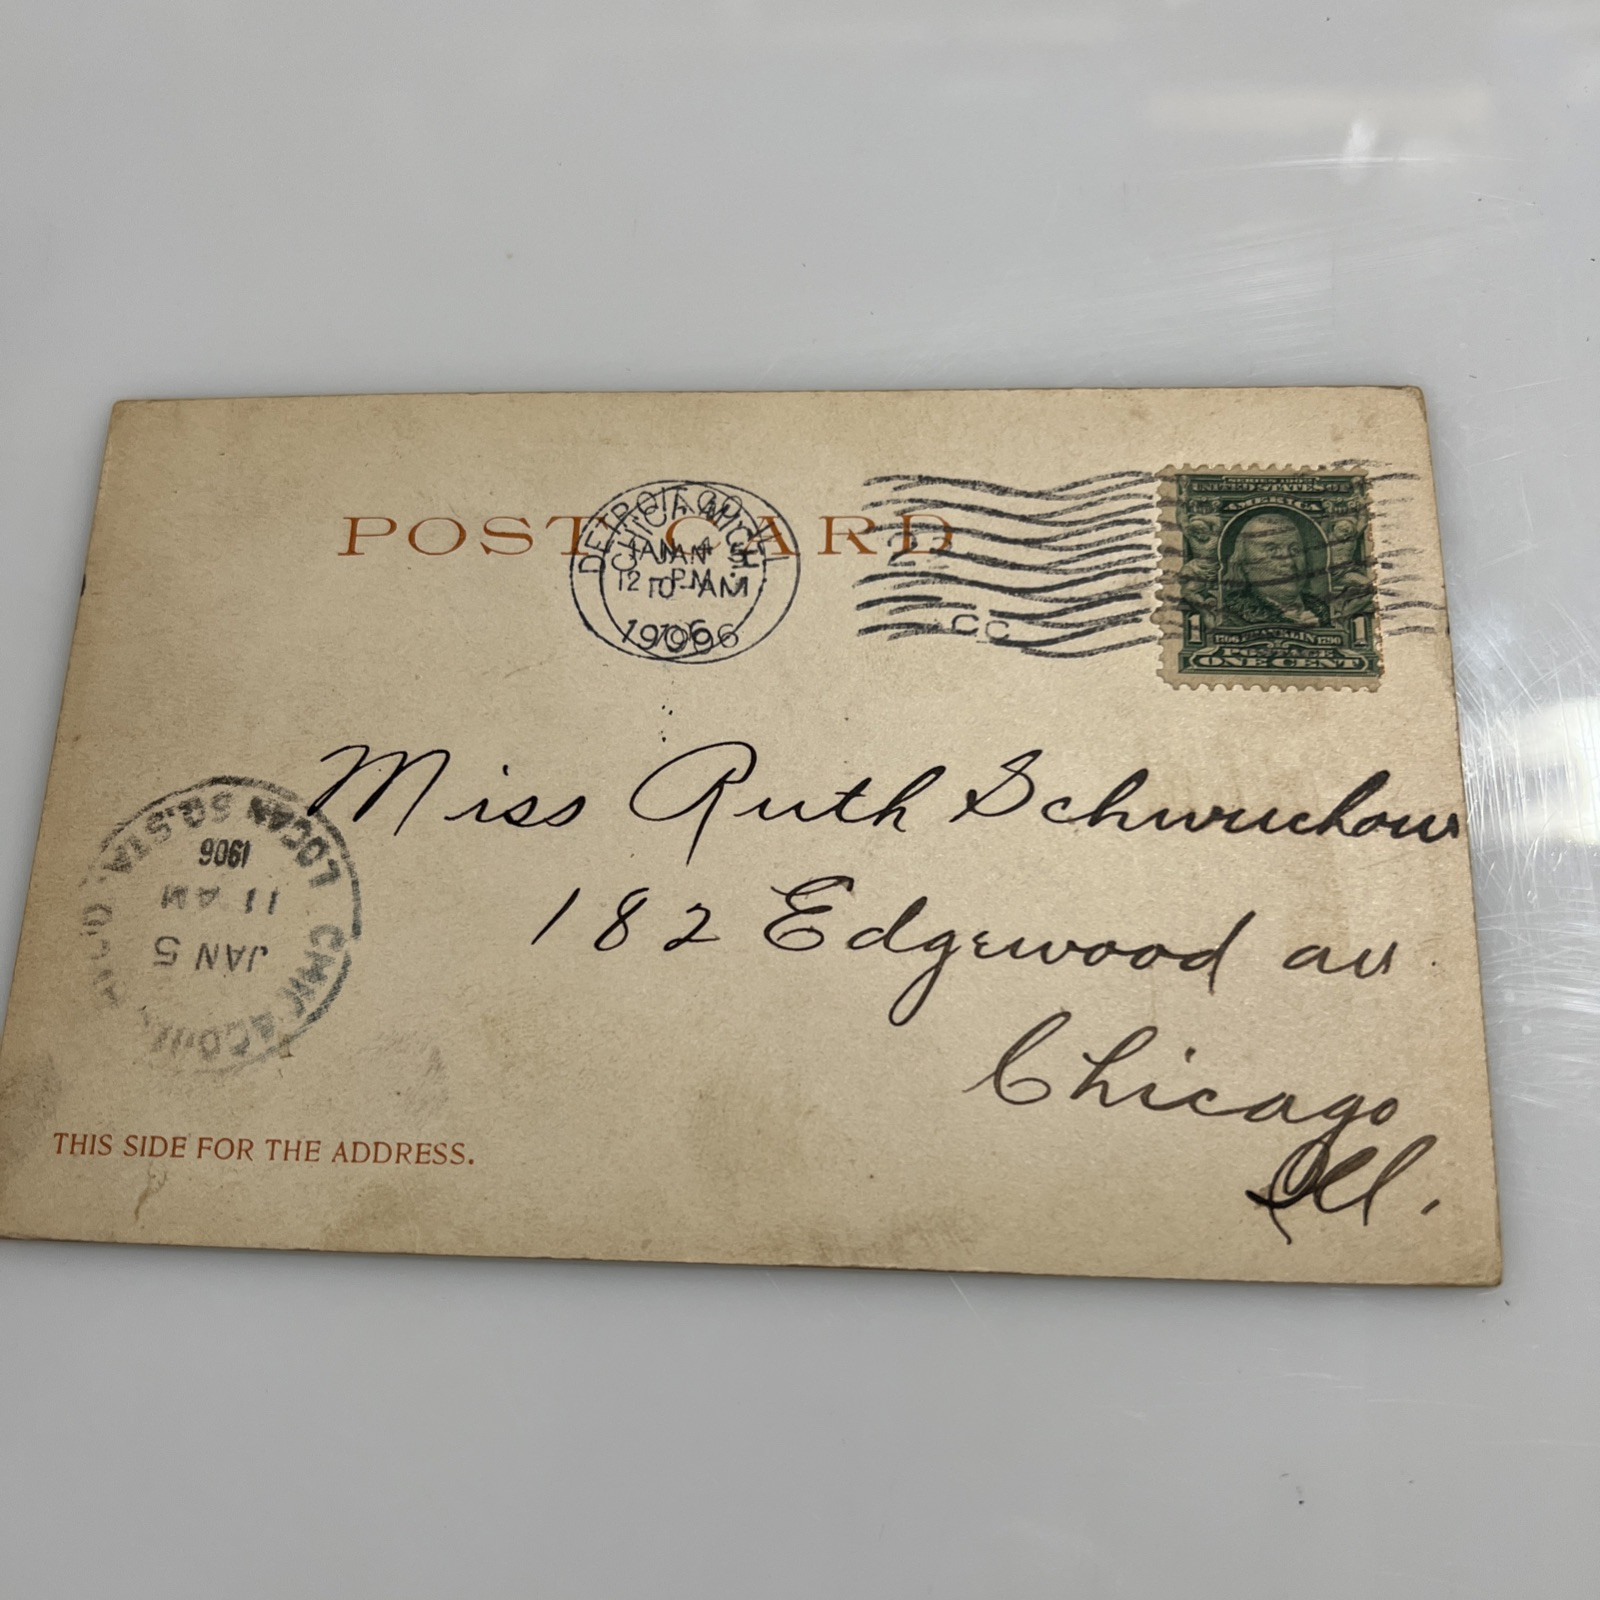 POST CARD
DETROIT, MICH.
CHICAGO, ILL.
JAN 4
JAN 5
12 PM
10 AM
1906
1906
2
CC
SERIES 1902
UNITED STATES OF
AMERICA
1 1
1706 FRANKLIN 1790
POSTAGE
ONE CENT
Miss Ruth Schwuchow
182 Edgewood av.
Chicago
Ill.
LOGAN SQ. STA.
1906
11 AM
JAN 5
THIS SIDE FOR THE ADDRESS.